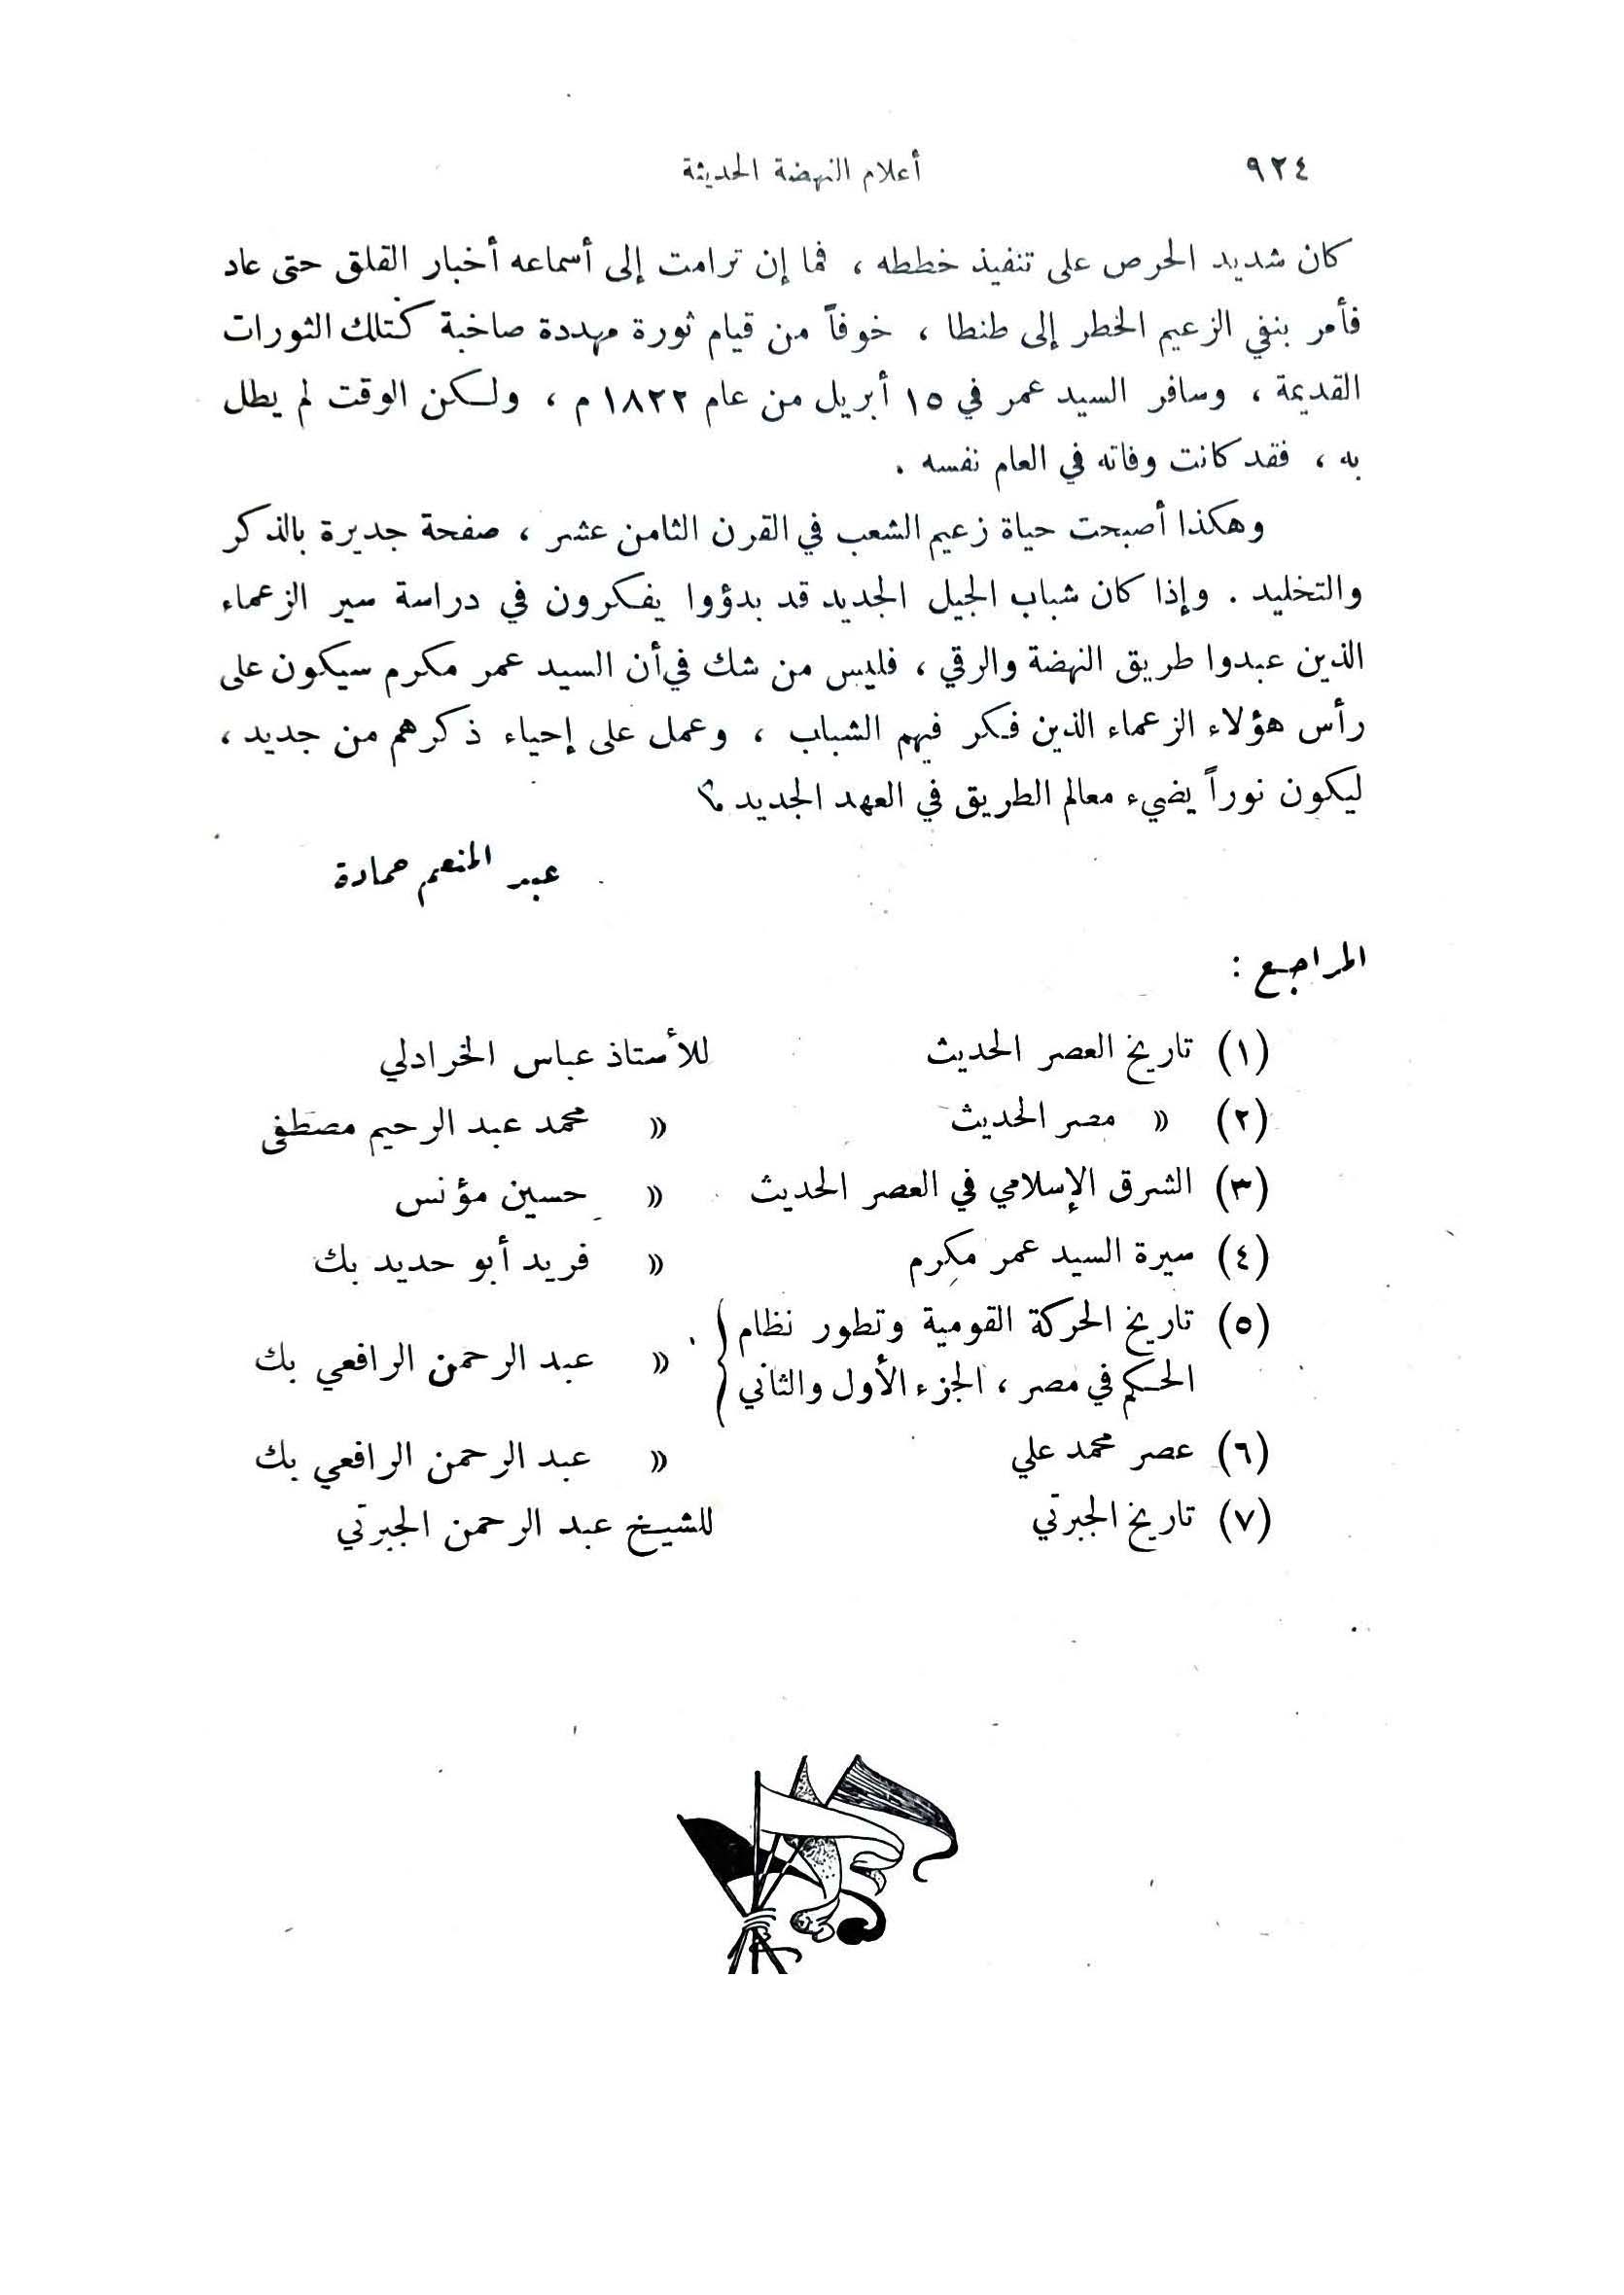 ٩٢٤ أعلام النهضة الحديثة
كان شديد الحرص على تنفيذ خططه ، فما إن ترامت إلى أسماعه أخبار القلق حتى عاد
فأمر بنفي الزعيم الخطر إلى طنطا ، خوفاً من قيام ثورة مهددة صاخبة كتلك الثورات
القديمة ، وسافر السيد عمر في ١٥ أبريل من عام ١٨٢٢ م ، ولكن الوقت لم يطل
به ، فقد كانت وفاته في العام نفسه .
وهكذا أصبحت حياة زعيم الشعب في القرن الثامن عشر ، صفحة جديرة بالذكر
والتخليد . وإذا كان شباب الجيل الجديد قد بدؤوا يفكرون في دراسة سير الزعماء
الذين عبدوا طريق النهضة والرقي ، فليس من شك في أن السيد عمر مكرم سيكون على
رأس هؤلاء الزعماء الذين فكر فيهم الشباب ، وعمل على إحياء ذكرهم من جديد ،
ليكون نوراً يضيء معالم الطريق في العهد الجديد ؟
عبد المنعم حمادة
المراجع :
(١) تاريخ العصر الحديث للأستاذ عباس الخرادلي
(٢) » مصر الحديث » محمد عبد الرحيم مصطفى
(٣) الشرق الإسلامي في العصر الحديث » حسين مؤنس
(٤) سيرة السيد عمر مكرم » فريد أبو حديد بك
(٥) تاريخ الحركة القومية وتطور نظام
الحكم في مصر ، الجزء الأول والثاني » عبد الرحمن الرافعي بك
(٦) عصر محمد علي » عبد الرحمن الرافعي بك
(٧) تاريخ الجبرتي للشيخ عبد الرحمن الجبرتي